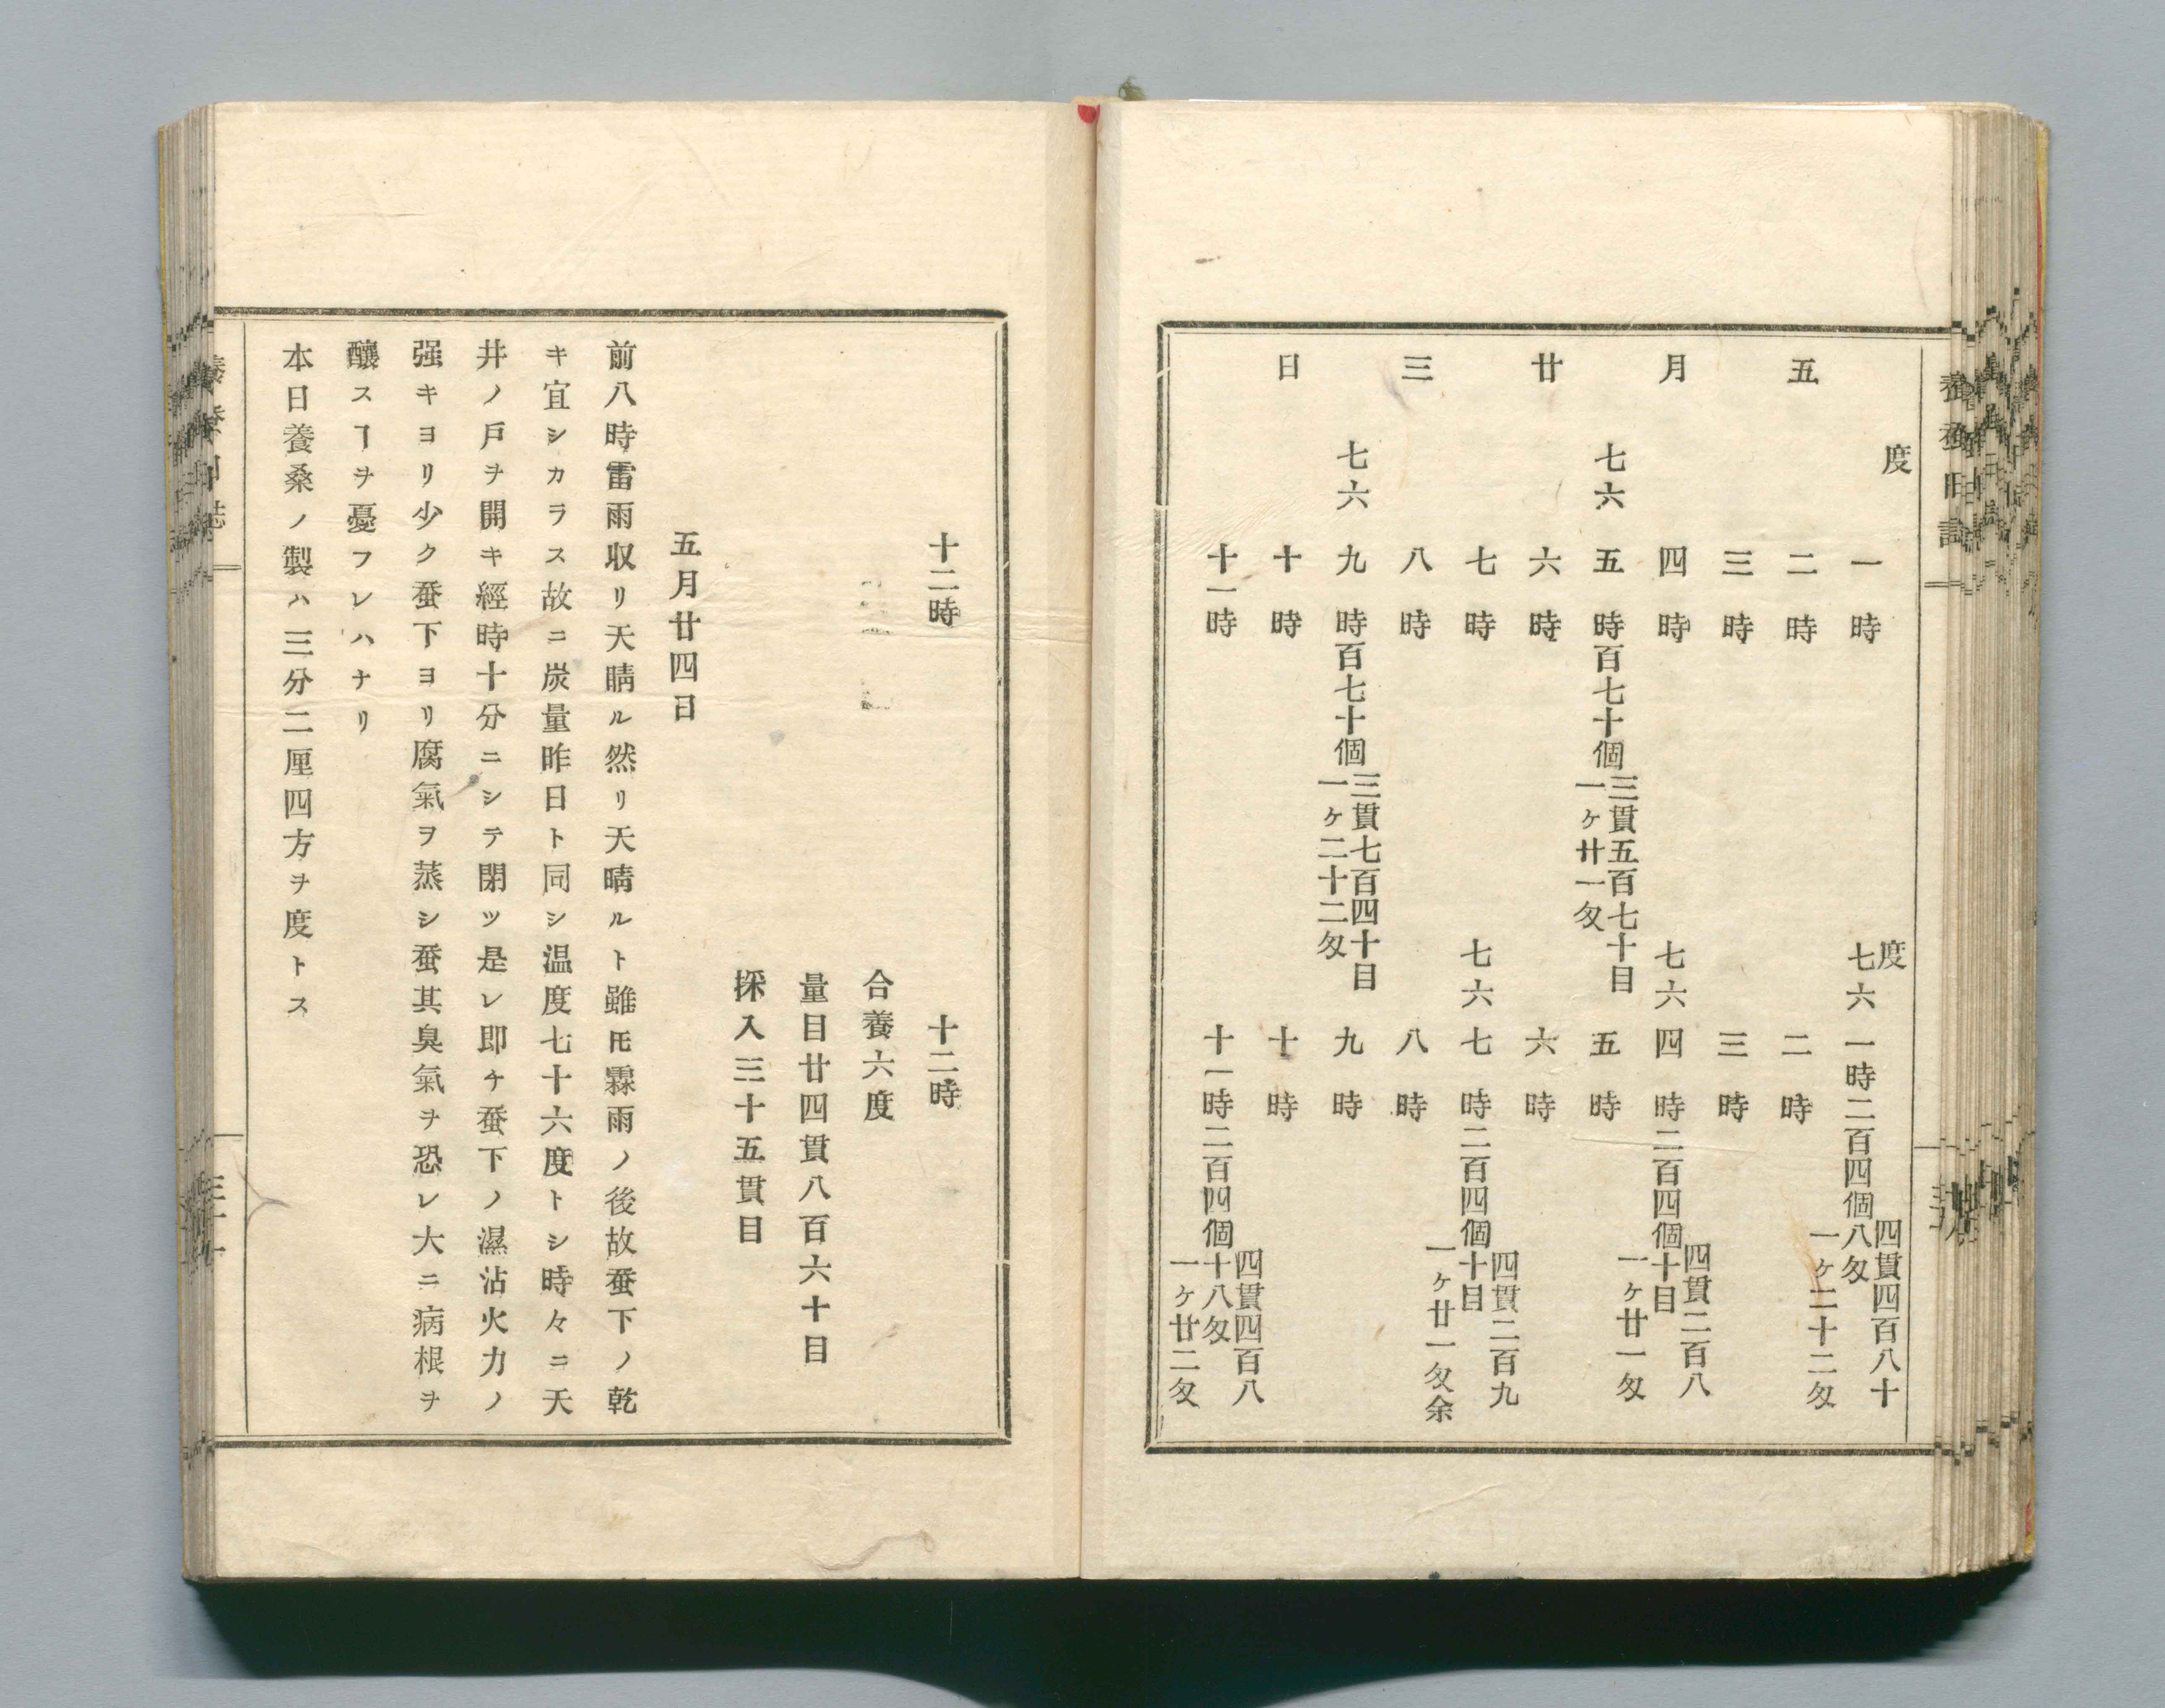 五月廿三日
度
一時
二時
三時
四時
七六 五時 百七十個 三貫五百七十目 一ヶ廿一匁
六時
七時
八時
七六 九時 百七十個 三貫七百四十目 一ヶ二十二匁
十時
十一時
度
七六 一時 二百四個 四貫四百八十八匁 一ヶ二十二匁
二時
三時
七六 四時 二百四個 四貫二百八十目 一ヶ廿一匁
五時
六時
七六 七時 二百四個 四貫二百九十目 一ヶ廿一匁余
八時
九時
十時
十一時 二百四個 四貫四百八十八匁 一ヶ廿二匁
十二時
十二時
合養六度
量目廿四貫八百六十目
採入三十五貫目
五月廿四日
前八時雷雨収リ天晴ル然リ天晴ルト雖𪜈霖雨ノ後故蚕下ノ乾
キ宜シカラス故ニ炭量昨日ト同シ温度七十六度トシ時々ニ天
井ノ戸ヲ開キ經時十分ニシテ閉ツ是レ即チ蚕下ノ濕沾火力ノ
强キヨリ少ク蚕下ヨリ腐氣ヲ蒸シ蚕其臭氣ヲ恐レ大ニ病根ヲ
釀スヿヲ憂フレハナリ
本日養桑ノ製ハ三分二厘四方ヲ度トス